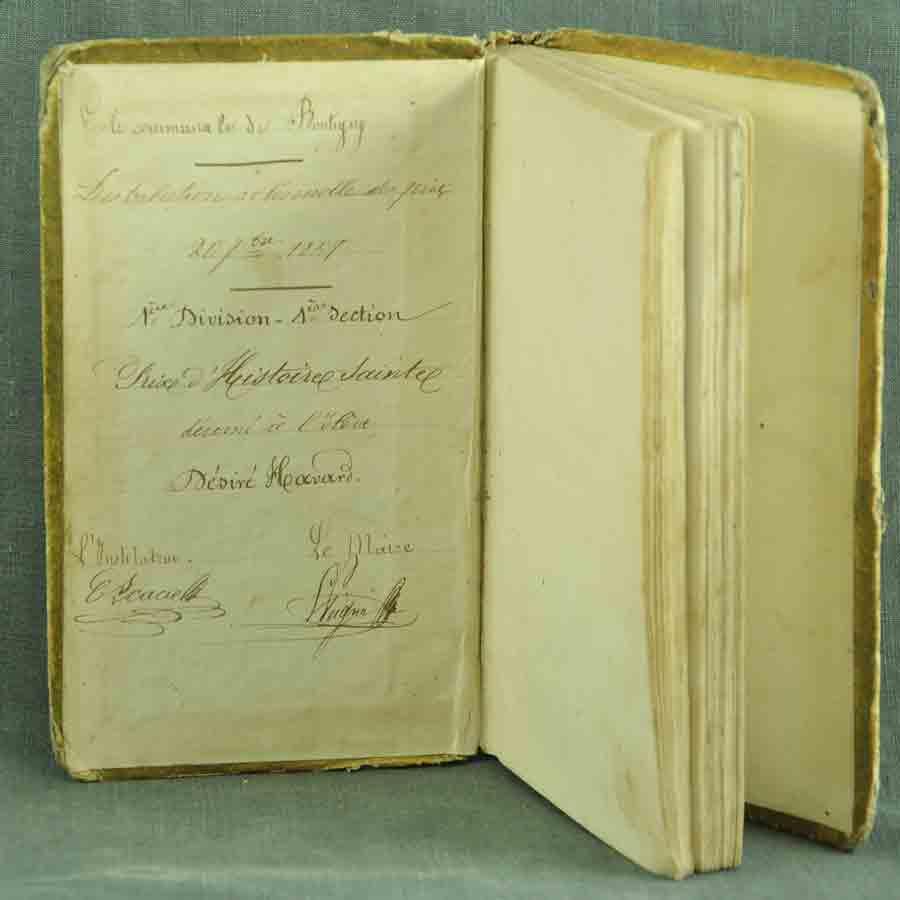 Ecole communale de
Distribution solennelle des prix
26 7bre
1ère Division - 1ère Section
Prix d'Histoire Sainte
décerné à l'élève
Désiré Havard.
L'Instituteur. Le Maire